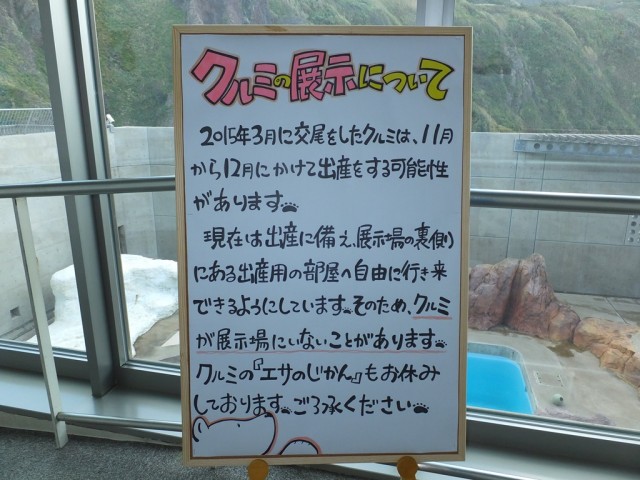 クルミの展示について
2015年3月に交尾をしたクルミは、11月
から12月にかけて出産をする可能性
があります。
現在は出産に備え、展示場の裏側
にある出産用の部屋へ自由に行き来
できるようにしています。そのため、クルミ
が展示場にいないことがあります。
クルミの『エサのじかん』もお休み
しております。ご了承ください。